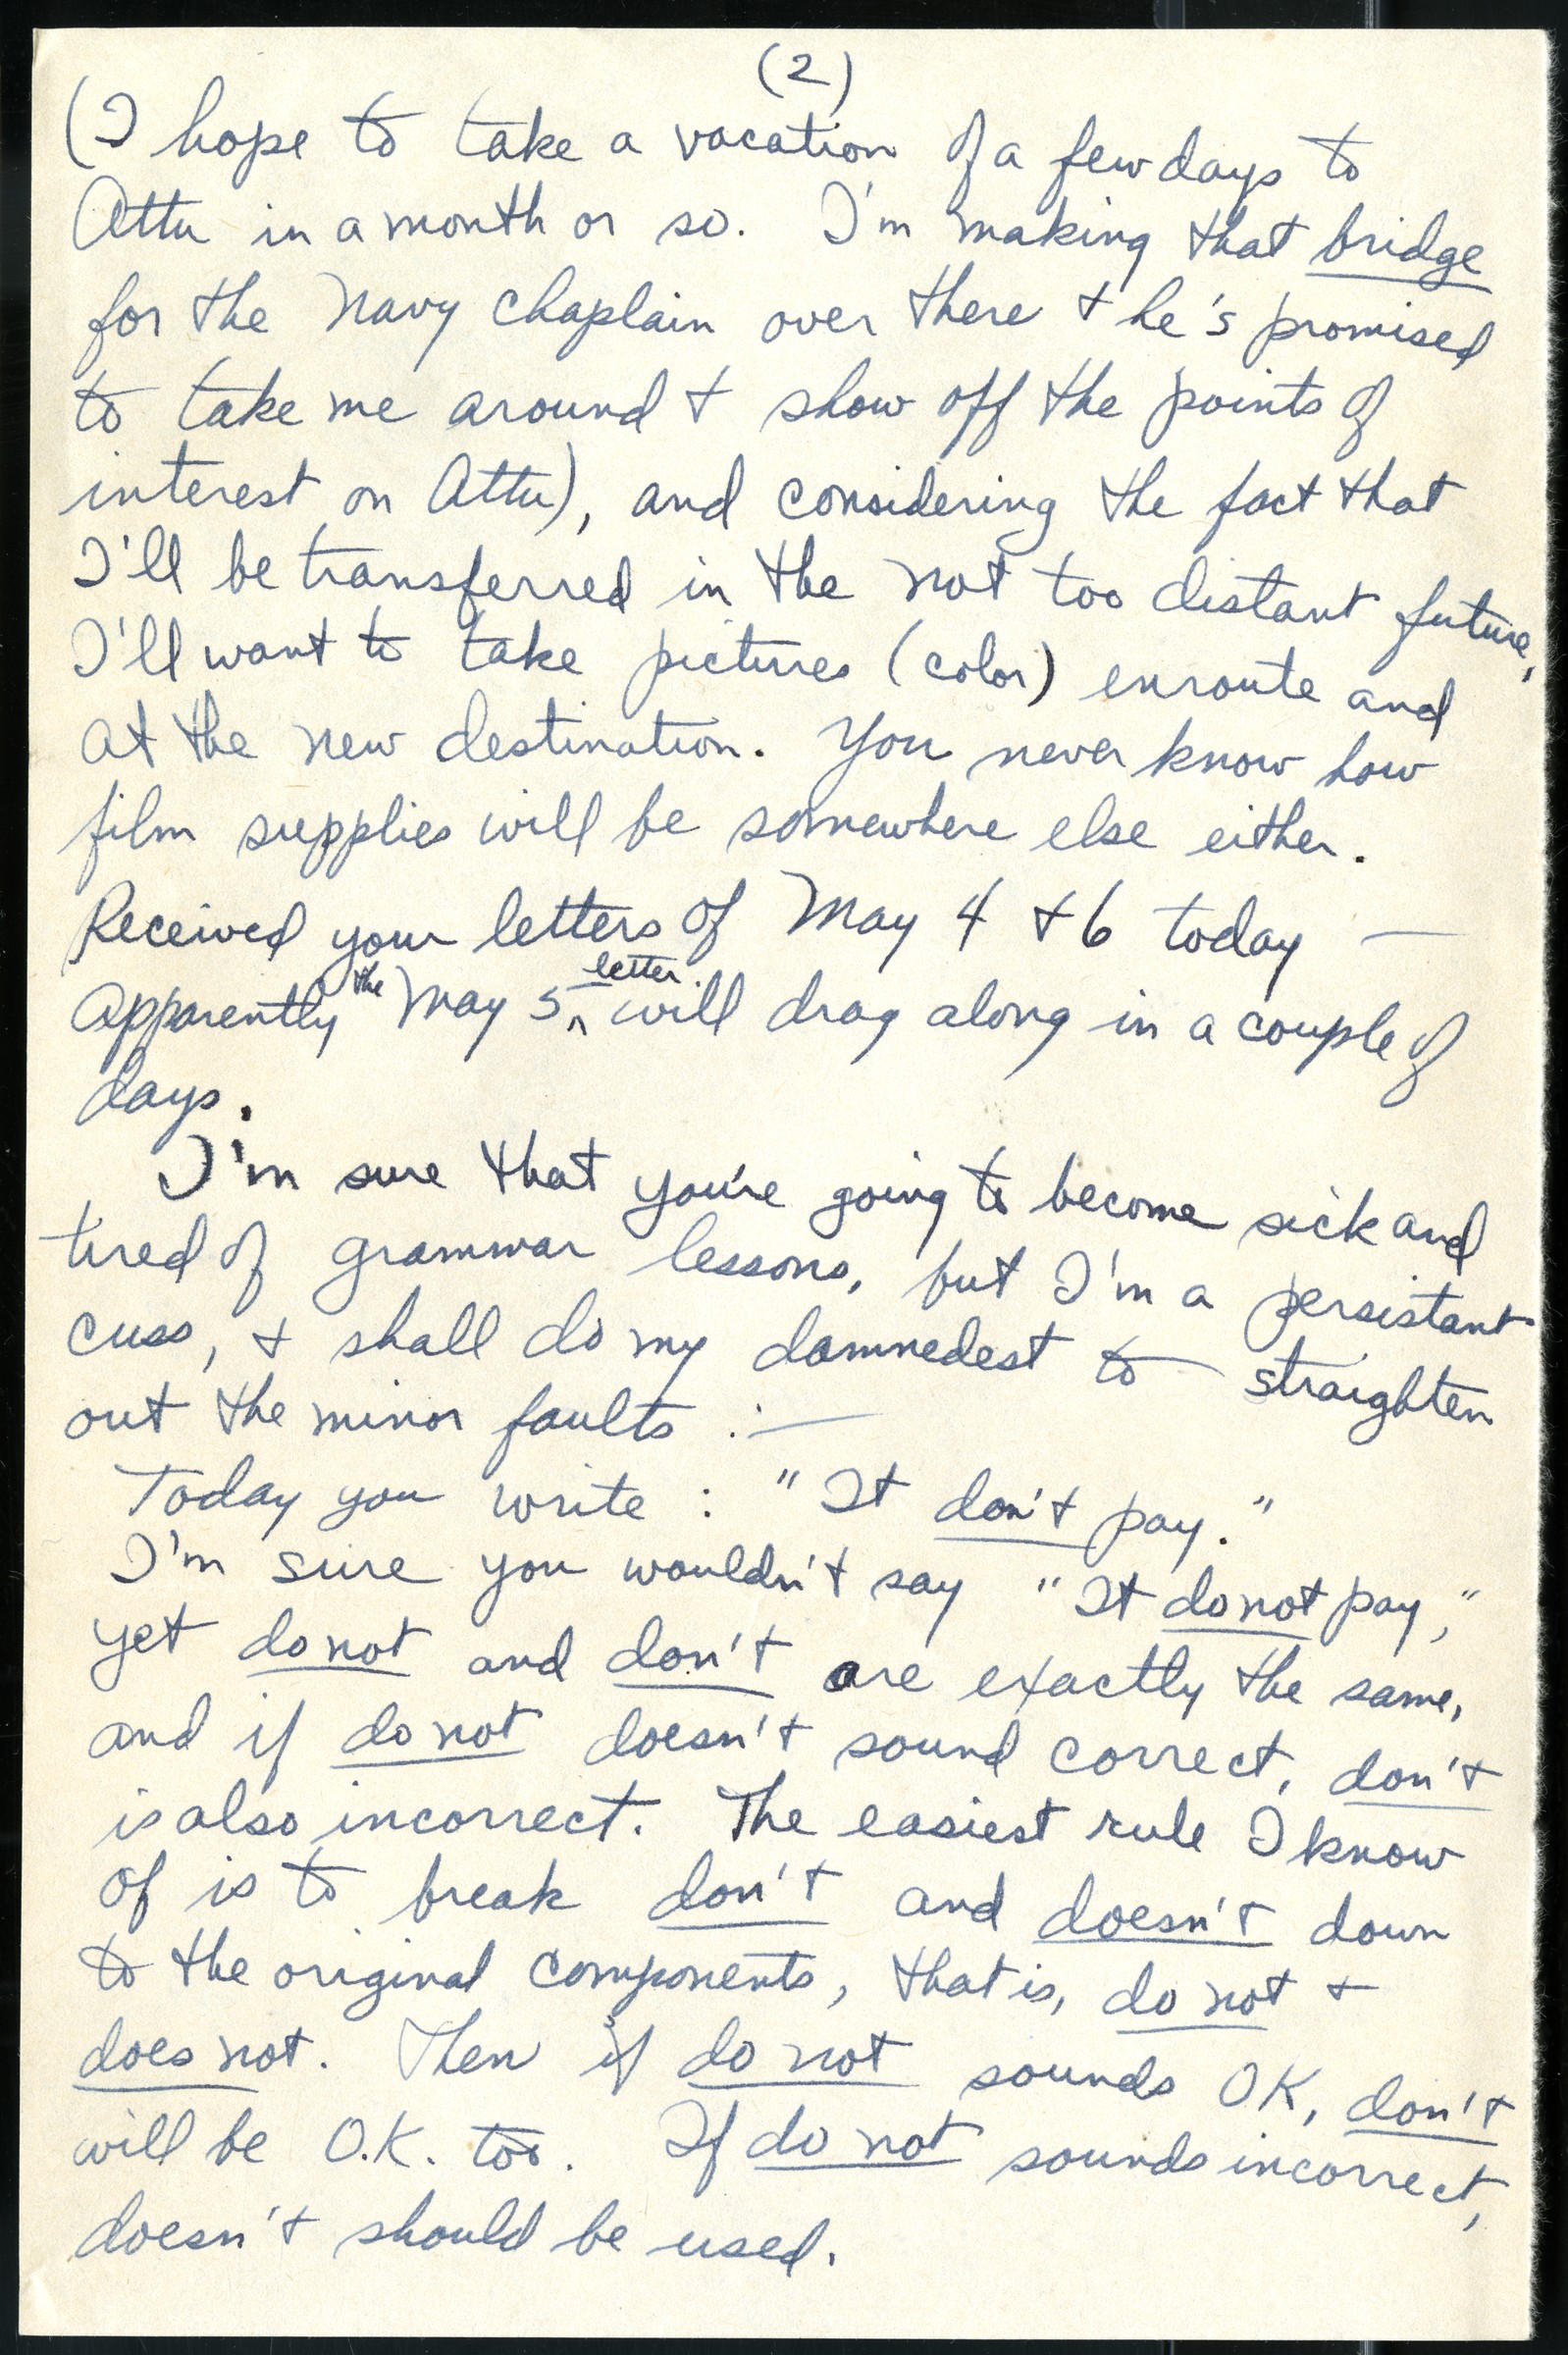 (2)
(I hope to take a vacation of a few days to
Attu in a month or so. I'm making that bridge
for the Navy chaplain over there + he's promised
to take me around + show off the points of
interest on Attu), and considering the fact that
I'll be transferred in the not too distant future,
I'll want to take pictures (color) enroute and
at the new destination. You never know how
film supplies will be somewhere else either.
Received your letters of May 4 + 6 today —
Apparently the May 5 letter will drag along in a couple of
days.
I'm sure that you're going to become sick and
tired of grammar lessons, but I'm a persistant
cuss, + shall do my damnedest to straighten
out the minor faults :—
Today you write : "It don't pay."
I'm sure you wouldn't say "It do not pay,"
yet do not and don't are exactly the same,
and if do not doesn't sound correct, don't
is also incorrect. The easiest rule I know
of is to break don't and doesn't down
to the original components, that is, do not +
does not. Then if do not sounds OK, don't
will be O.K. too. If do not sounds incorrect,
doesn't should be used.